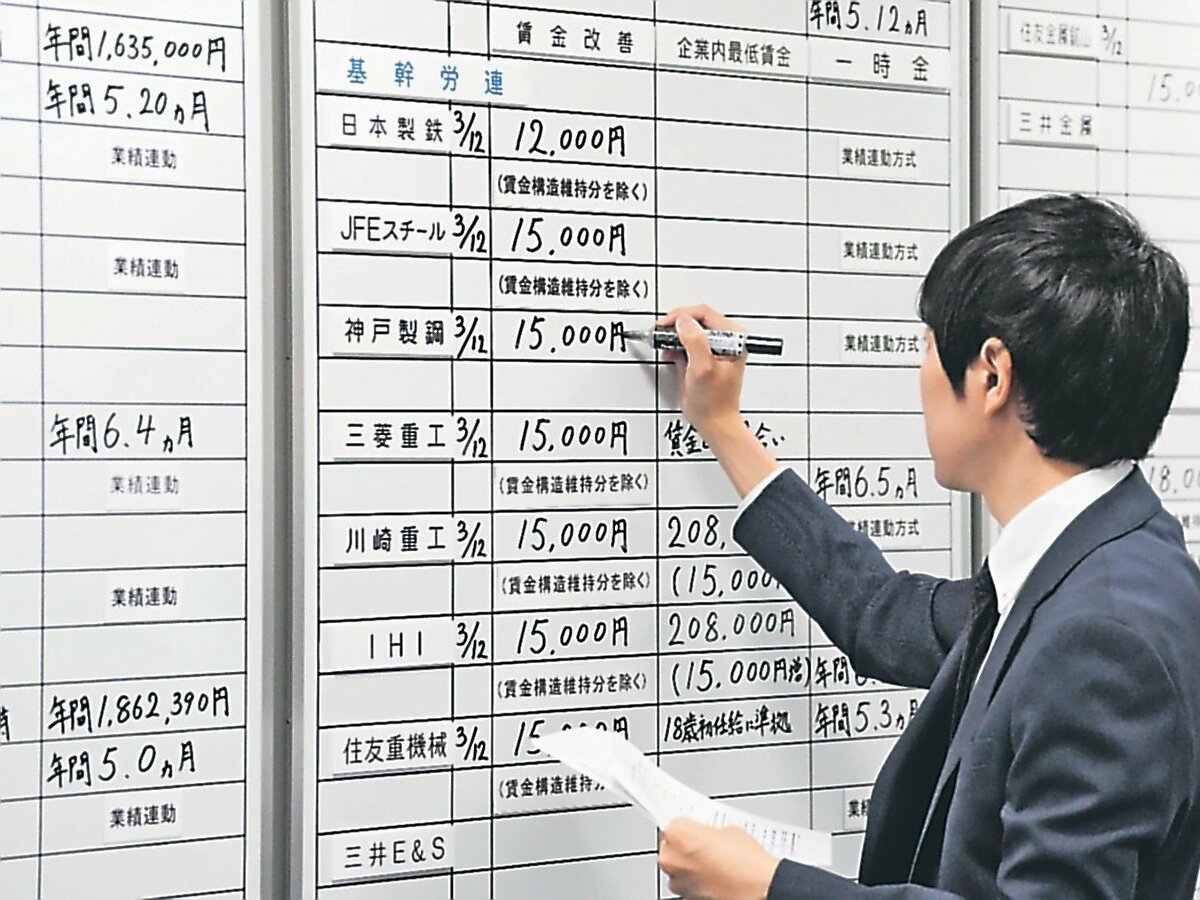 年間1,635,000円
年間5.20ヵ月
業績連動
業績連動
年間6.4ヵ月
業績連動
業績連動
年間1,862,390円
年間5.0ヵ月
業績連動
年間5.12ヵ月
賃金改善 企業内最低賃金 一時金
基幹労連
日本製鉄 3/12 12,000円 業績連動方式
(賃金構造維持分を除く)
JFEスチール 3/12 15,000円 業績連動方式
(賃金構造維持分を除く)
神戸製鋼 3/12 15,000円 業績連動方式
三菱重工 3/12 15,000円 賃金
(賃金構造維持分を除く) 年間6.5ヵ月
川崎重工 3/12 15,000円 208, 業績連動方式
(賃金構造維持分を除く) (15,000
IHI 3/12 15,000円 208,000円
(賃金構造維持分を除く) (15,000円増) 年間
住友重機械 3/12 15 18歳初任給に準拠 年間5.3ヵ月
(賃金構造維持分
三井E&S
住友金属鉱山 3/12
15,0
三井金属
18,0